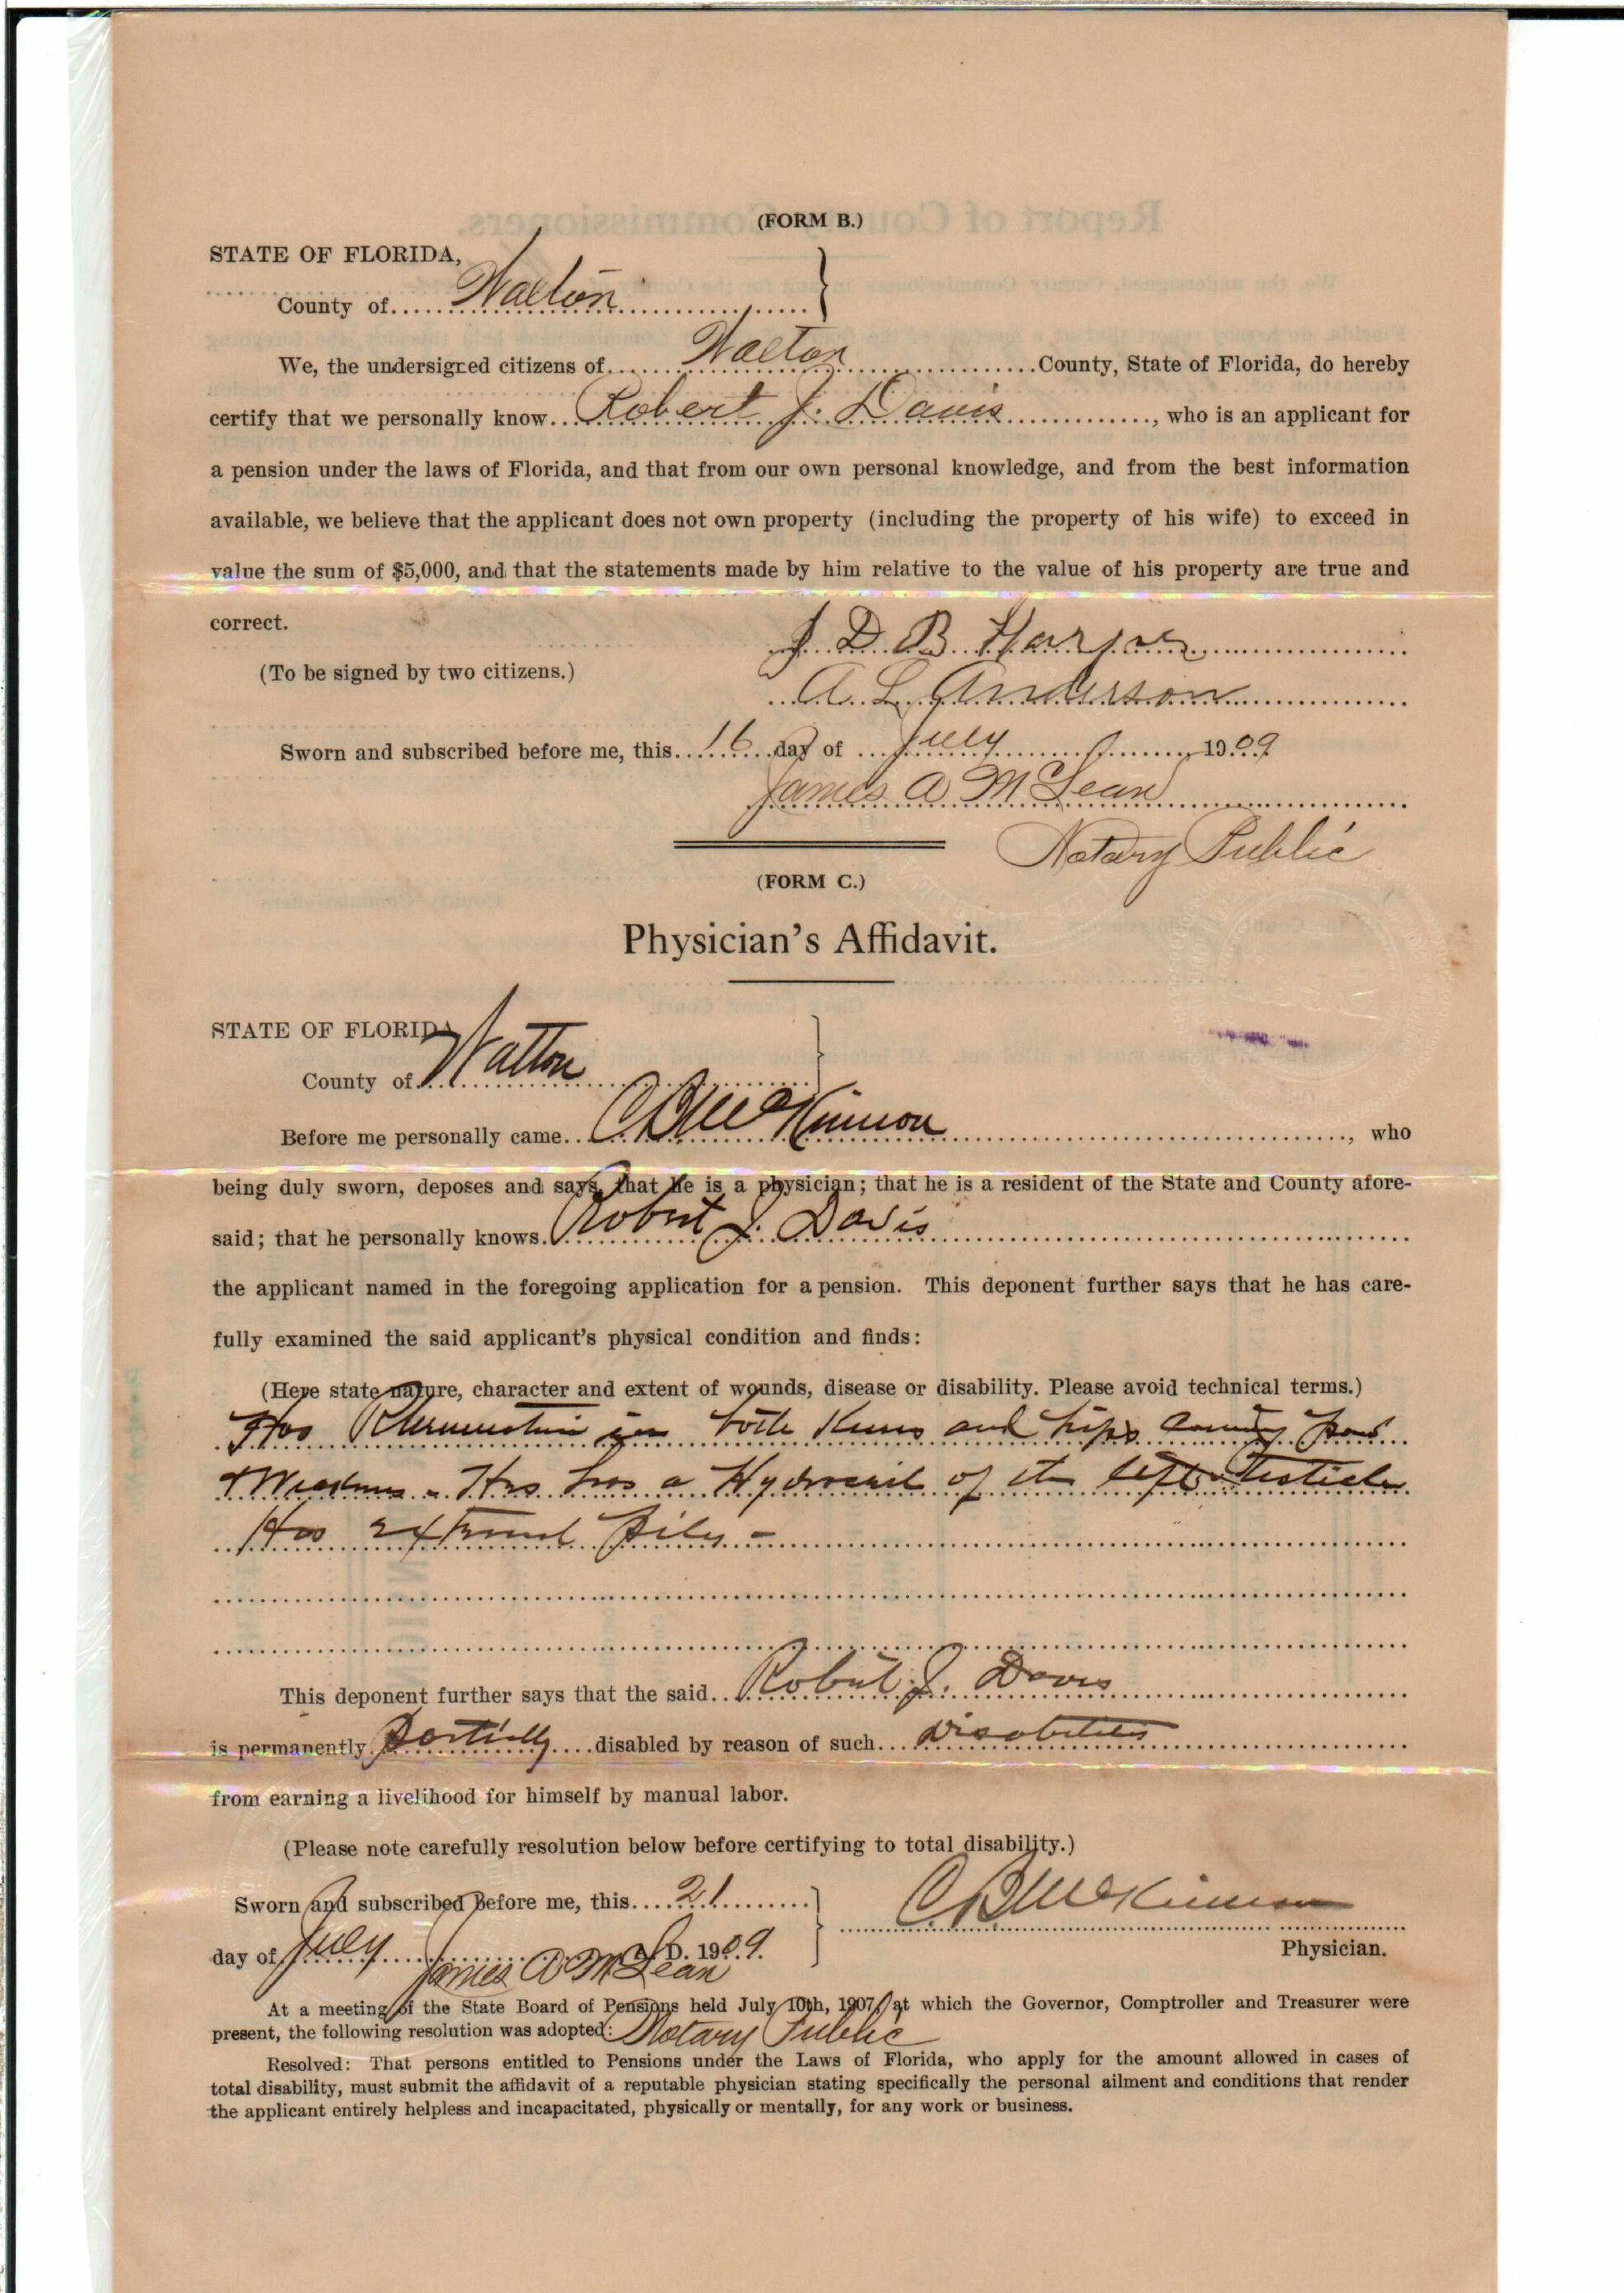 (FORM B.)
STATE OF FLORIDA,
County of Walton
We, the undersigned citizens of Walton County, State of Florida, do hereby
certify that we personally know Robert J. Davis, who is an applicant for
a pension under the laws of Florida, and that from our own personal knowledge, and from the best information
available, we believe that the applicant does not own property (including the property of his wife) to exceed in
value the sum of $5,000, and that the statements made by him relative to the value of his property are true and
correct.
J. D. B.
(To be signed by two citizens.)
A. L. Anderson
Sworn and subscribed before me, this 16 day of July 1909
James A McLean
Notary Public
(FORM C.)
Physician's Affidavit.
STATE OF FLORIDA
County of Walton
Before me personally came C B McKinnon, who
being duly sworn, deposes and says, that he is a physician; that he is a resident of the State and County afore-
said; that he personally knows Robert J. Davis
the applicant named in the foregoing application for a pension. This deponent further says that he has care-
fully examined the said applicant's physical condition and finds:
(Here state nature, character and extent of wounds, disease or disability. Please avoid technical terms.)
Has Rheumatism in both Knees and hips causing
& Weakness - has a of the left Testicle
Has External Piles -
This deponent further says that the said Robert J. Davis
is permanently Partially disabled by reason of such disabilities
from earning a livelihood for himself by manual labor.
(Please note carefully resolution below before certifying to total disability.)
Sworn and subscribed before me, this 21
C B McKinnon
day of July A. D. 1909.
Physician.
James A McLean
At a meeting of the State Board of Pensions held July 10th, 1907, at which the Governor, Comptroller and Treasurer were
present, the following resolution was adopted:
Notary Public
Resolved: That persons entitled to Pensions under the Laws of Florida, who apply for the amount allowed in cases of
total disability, must submit the affidavit of a reputable physician stating specifically the personal ailment and conditions that render
the applicant entirely helpless and incapacitated, physically or mentally, for any work or business.